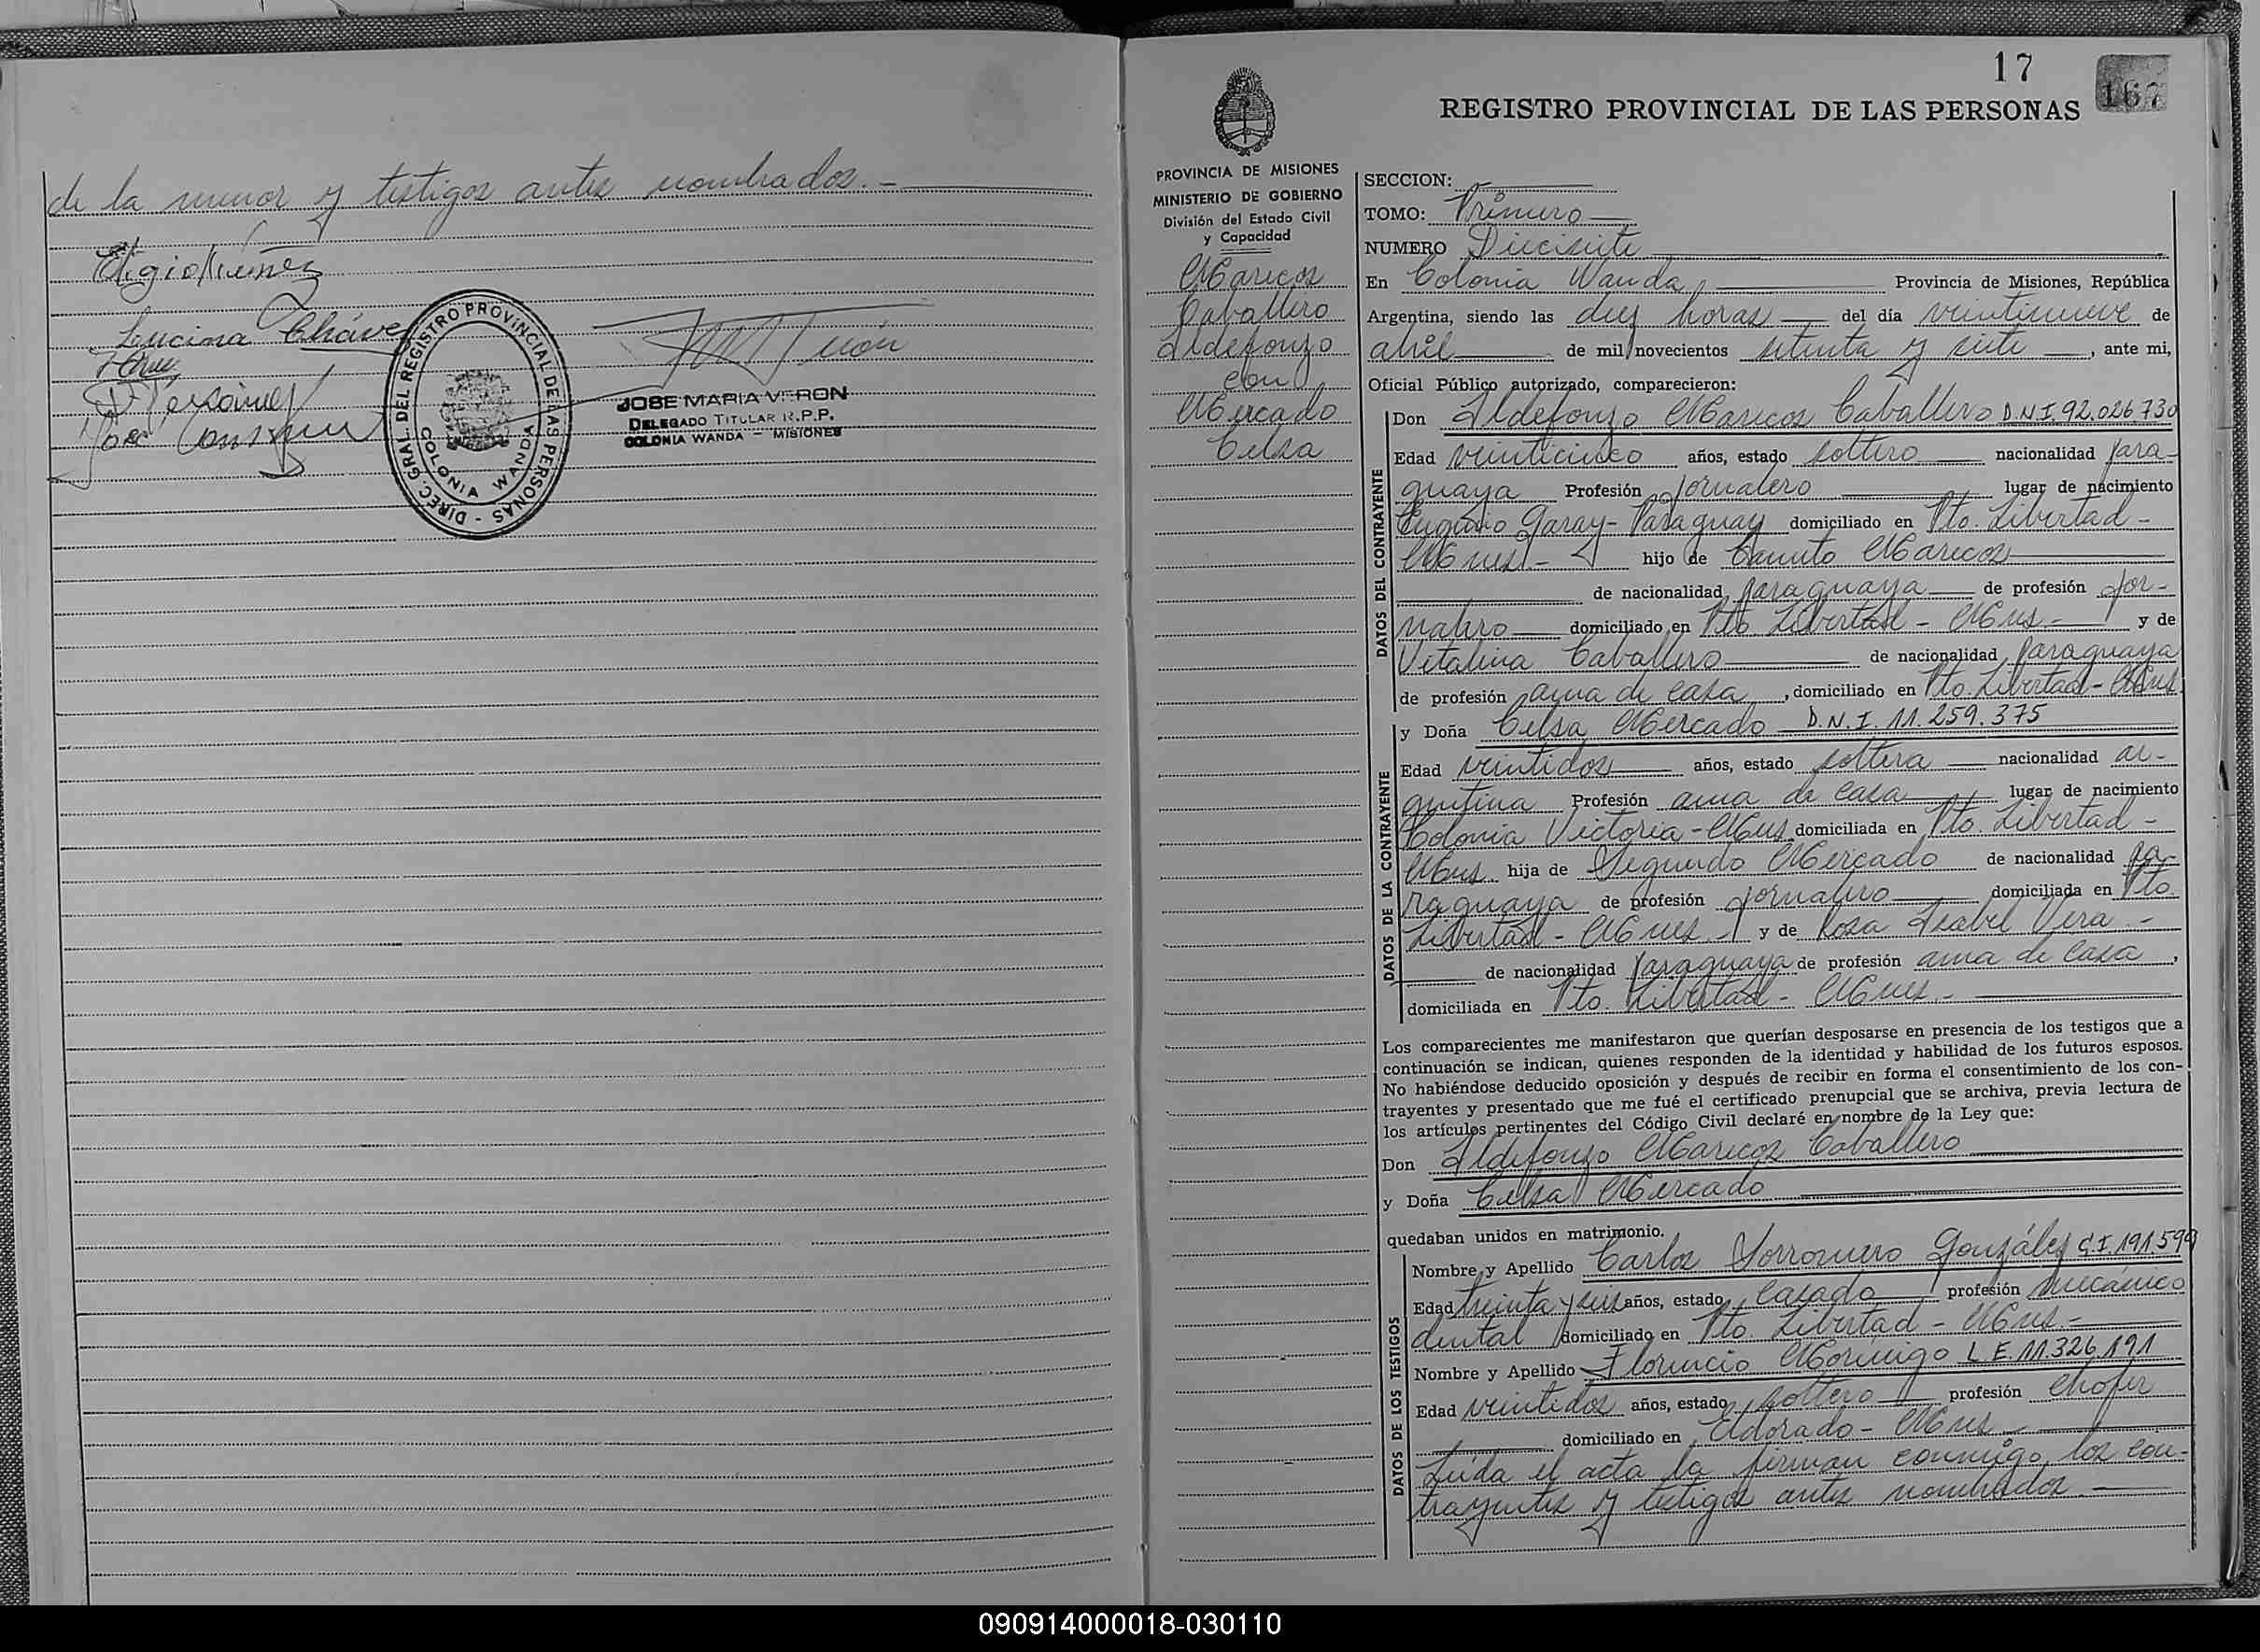 de la menor y testigos antes nombrados.-
Eligio Nuñez
Lucina Chávez
JOSE MARIA VERON
DELEGADO TITULAR R.P.P.
COLONIA WANDA - MISIONES
DIREC. GRAL. DEL REGISTRO PROVINCIAL DE LAS PERSONAS -
COLONIA WANDA
17
167
REGISTRO PROVINCIAL DE LAS PERSONAS
PROVINCIA DE MISIONES
MINISTERIO DE GOBIERNO
División del Estado Civil
y Capacidad
Marecos
Caballero
Ildefonzo
con
Mercado
Celsa
SECCION:
TOMO: Primero
NUMERO Diecisiete
En Colonia Wanda, Provincia de Misiones, República
Argentina, siendo las diez horas del día veintinueve de
abril de mil novecientos setenta y siete, ante mi,
Oficial Público autorizado, comparecieron:
DATOS DEL CONTRAYENTE
Don Ildefonzo Marecos Caballero D.N.I. 92.026.730
Edad veinticinco años, estado soltero nacionalidad para-
guaya Profesión jornalero lugar de nacimiento
Eugenio Garay - Paraguay domiciliado en Pto. Libertad -
Mnes.- hijo de Canuto Marecos
de nacionalidad paraguaya de profesión jor-
nalero domiciliado en Pto. Libertad - Mnes.- y de
Vitalina Caballero de nacionalidad paraguaya
de profesión ama de casa, domiciliado en Pto. Libertad - Mnes.
DATOS DE LA CONTRAYENTE
y Doña Celsa Mercado D.N.I. 11.259.375
Edad veintidos años, estado soltera nacionalidad ar-
gentina Profesión ama de casa lugar de nacimiento
Colonia Victoria - Mnes domiciliada en Pto. Libertad -
Mnes. hija de Segundo Mercado de nacionalidad pa-
raguaya de profesión jornalero domiciliada en Pto.
Libertad - Mnes.- y de Rosa Isabel Vera.-
de nacionalidad paraguaya de profesión ama de casa,
domiciliada en Pto. Libertad - Mnes.-
Los comparecientes me manifestaron que querían desposarse en presencia de los testigos que a
continuación se indican, quienes responden de la identidad y habilidad de los futuros esposos.
No habiéndose deducido oposición y después de recibir en forma el consentimiento de los con-
trayentes y presentado que me fué el certificado prenupcial que se archiva, previa lectura de
los artículos pertinentes del Código Civil declaré en nombre de la Ley que:
Don Ildefonzo Marecos Caballero
y Doña Celsa Mercado
quedaban unidos en matrimonio.
DATOS DE LOS TESTIGOS
Nombre y Apellido Carlos González C.I. 191.599
Edad treinta y seis años, estado casado profesión mecánico
dental domiciliado en Pto. Libertad - Mnes.-
Nombre y Apellido Florencio Morinigo L.E. 11.326.191
Edad veintidos años, estado soltero profesión chofer
domiciliado en Eldorado - Mnes.-
Leída el acta la firman conmigo, los con-
trayentes y testigos antes nombrados.-
090914000018-030110